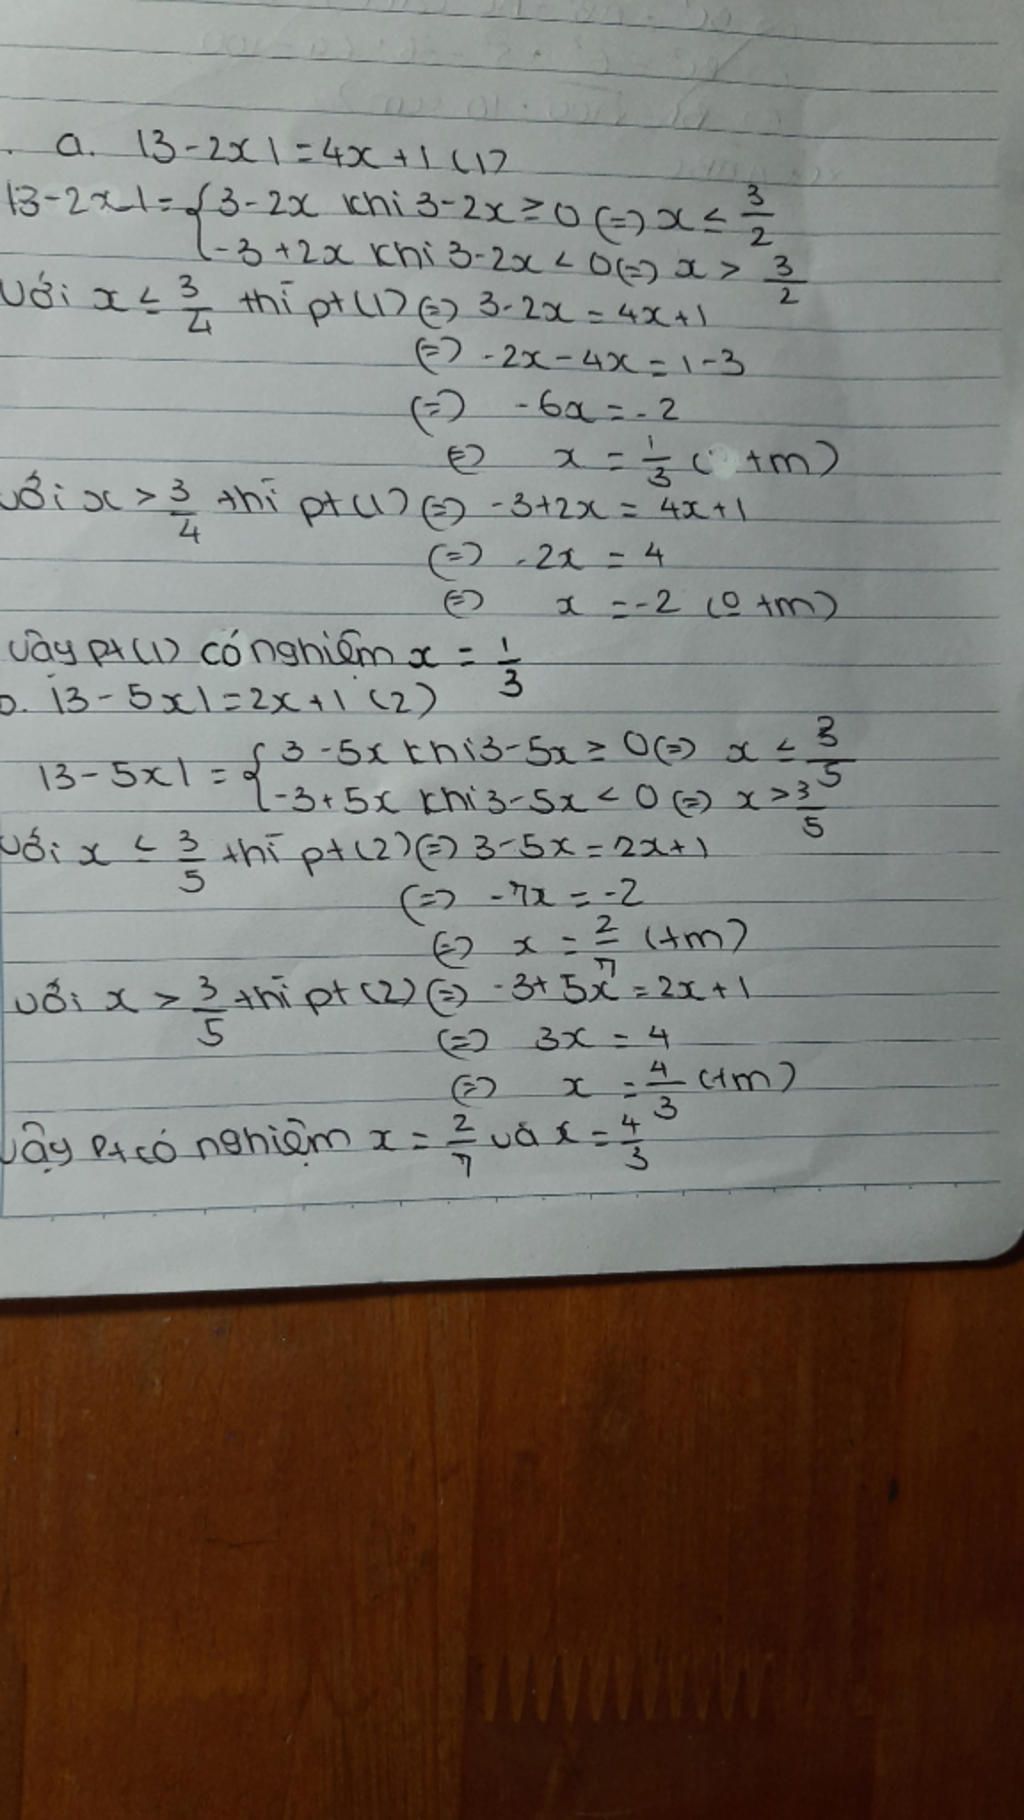 a. |3-2x|=4x+1 (1)
|3-2x|={3-2x khi 3-2x≥0 (=) x ≤ 3/2
{-3+2x khi 3-2x<0 (=) x > 3/2
Với x ≤ 3/4 thì pt(1) (=) 3-2x=4x+1
(=) -2x-4x=1-3
(=) -6x=-2
(=) x = 1/3 ( tm)
Với x > 3/4 thì pt(1) (=) -3+2x = 4x+1
(=) -2x = 4
(=) x = -2 (o tm)
Vậy pt(1) có nghiệm x = 1/3
b. |3-5x|=2x+1 (2)
|3-5x| = {3-5x khi 3-5x ≥ 0 (=) x ≤ 3/5
{-3+5x khi 3-5x < 0 (=) x > 3/5
Với x ≤ 3/5 thì pt(2) (=) 3-5x=2x+1
(=) -7x = -2
(=) x = 2/7 (tm)
Với x > 3/5 thì pt(2) (=) -3+5x=2x+1
(=) 3x = 4
(=) x = 4/3 (tm)
Vậy pt có nghiệm x = 2/7 và x = 4/3